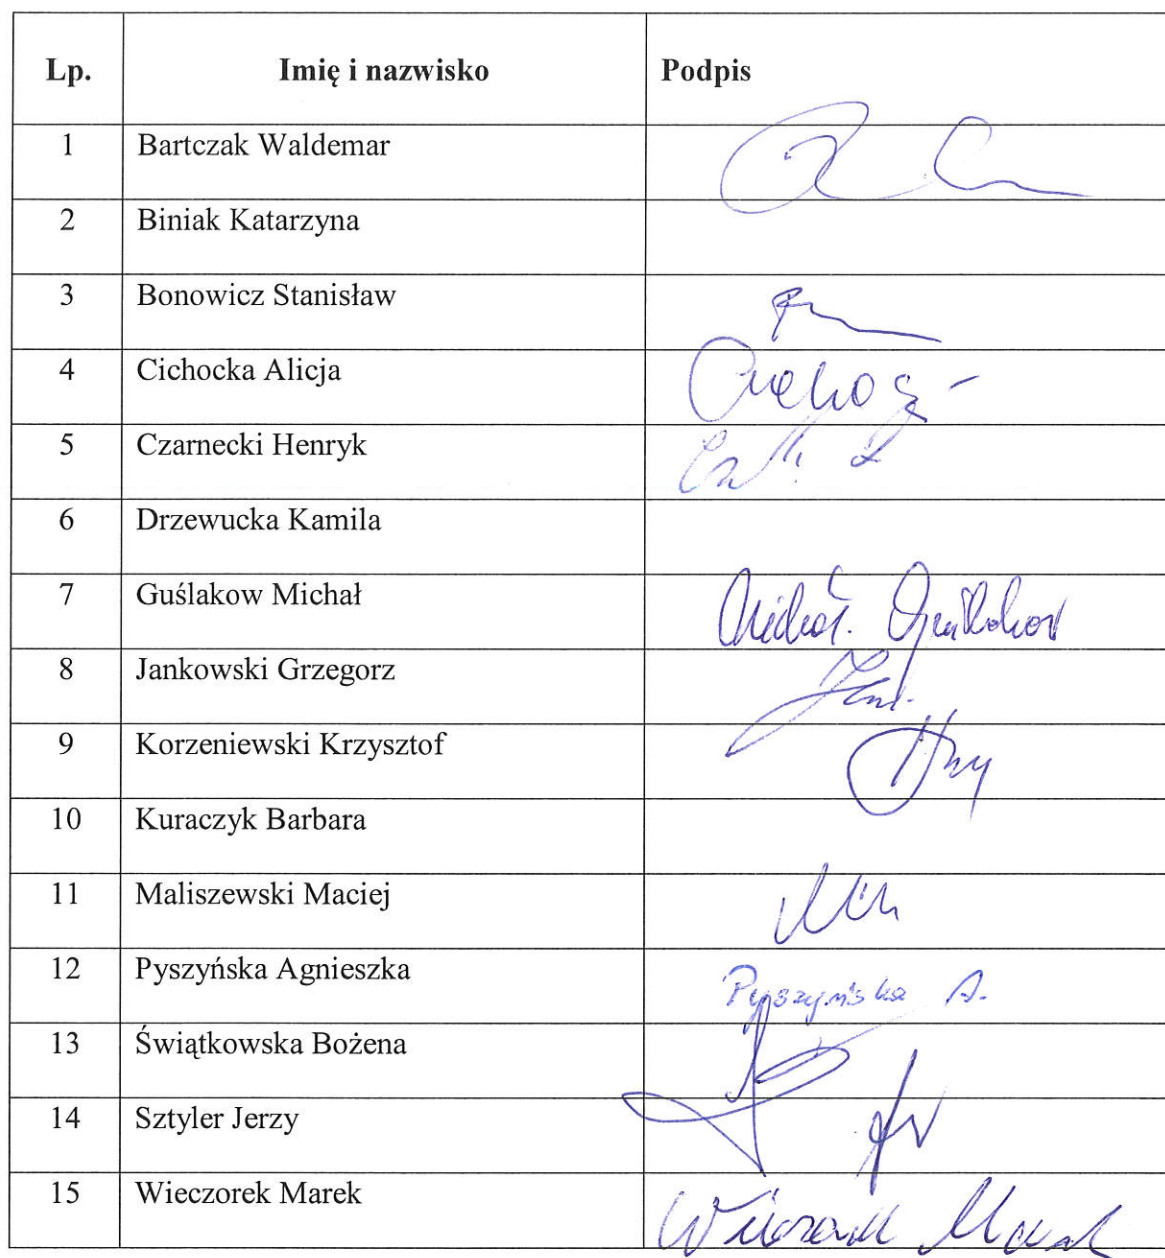 Lp. Imię i nazwisko Podpis
1 Bartczak Waldemar
2 Biniak Katarzyna
3 Bonowicz Stanisław
4 Cichocka Alicja
5 Czarnecki Henryk
6 Drzewucka Kamila
7 Guślakow Michał Michał. Guślakow
8 Jankowski Grzegorz
9 Korzeniewski Krzysztof
10 Kuraczyk Barbara
11 Maliszewski Maciej
12 Pyszyńska Agnieszka Pyszyńska A.
13 Świątkowska Bożena
14 Sztyler Jerzy
15 Wieczorek Marek Wieczorek Marek